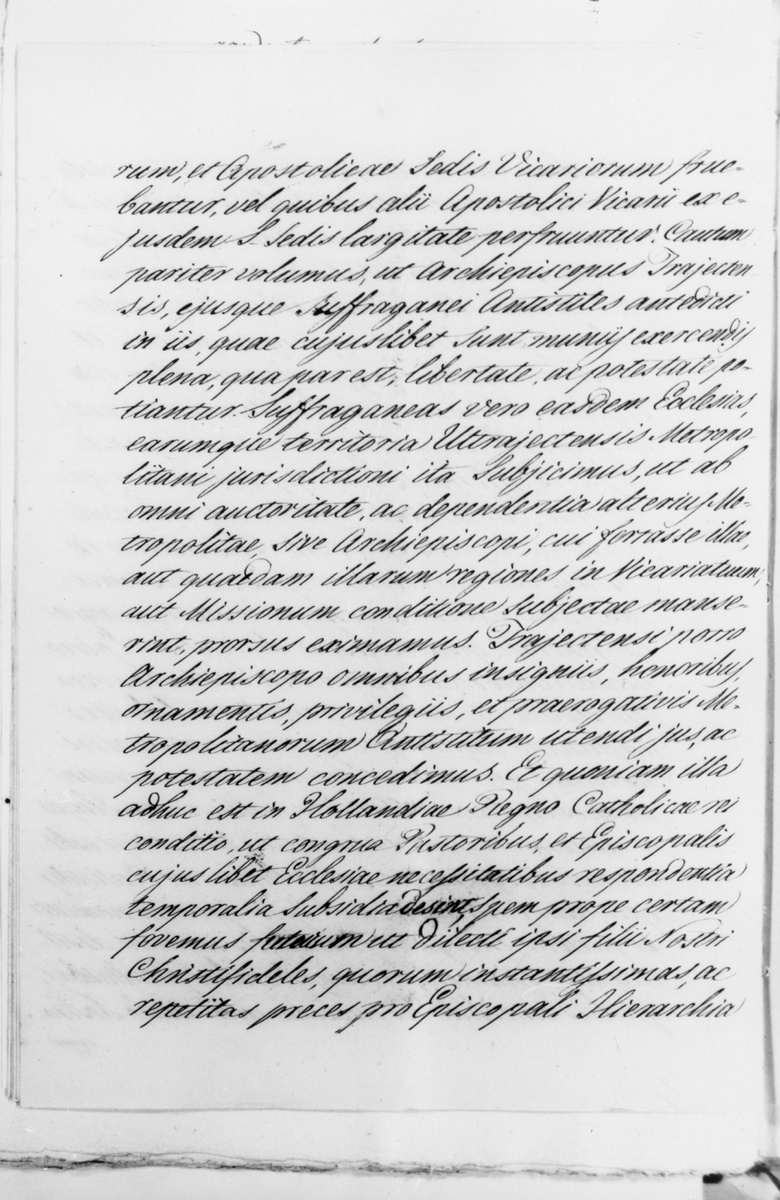 rum, et Apostolicae Sedis Vicariorum frue-
bantur, vel quibus alii Apostolici Vicarii ex e-
jusdem S. Sedis largitate perfruuntur. Cautum
pariter volumus, ut Archiepiscopus Trajecten
sis, ejusque Suffraganei Antistites antedicti
in iis, quae cujuslibet sunt muniis exercendis
plena, qua par est, libertate, ac potestate po-
tiantur. Suffraganeas vero easdem Ecclesias,
earumque territoria Ultrajectensis Metropo-
litani jurisdictioni ita Subjicimus, ut ab
omni auctoritate, ac dependentia alterius Me-
tropolitae, sive Archiepiscopi, cui fortasse illae,
aut quaedam illarum regiones in Vicariatuum,
aut Missionum conditione subjectae manse-
rint, prorsus eximamus. Trajectensi porro
Archiepiscopo omnibus insigniis, honoribus,
ornamentis, privilegiis, et praerogativis Me-
tropolitanorum Antistitum utendi jus, ac
potestatem concedimus. Et quoniam illa
adhuc est in Hollandiae Regno Catholicae rei
conditio, ut congrua Pastoribus, et Episcopalis
cujuslibet Ecclesiae necessitatibus respondentia
temporalia Subsidia desint, Spem prope certam
fovemus futurum ut Dilecti ipsi filii Nostri
Christifideles, quorum instantissimas, ac
repetitas preces pro Episcopali Hierarchia